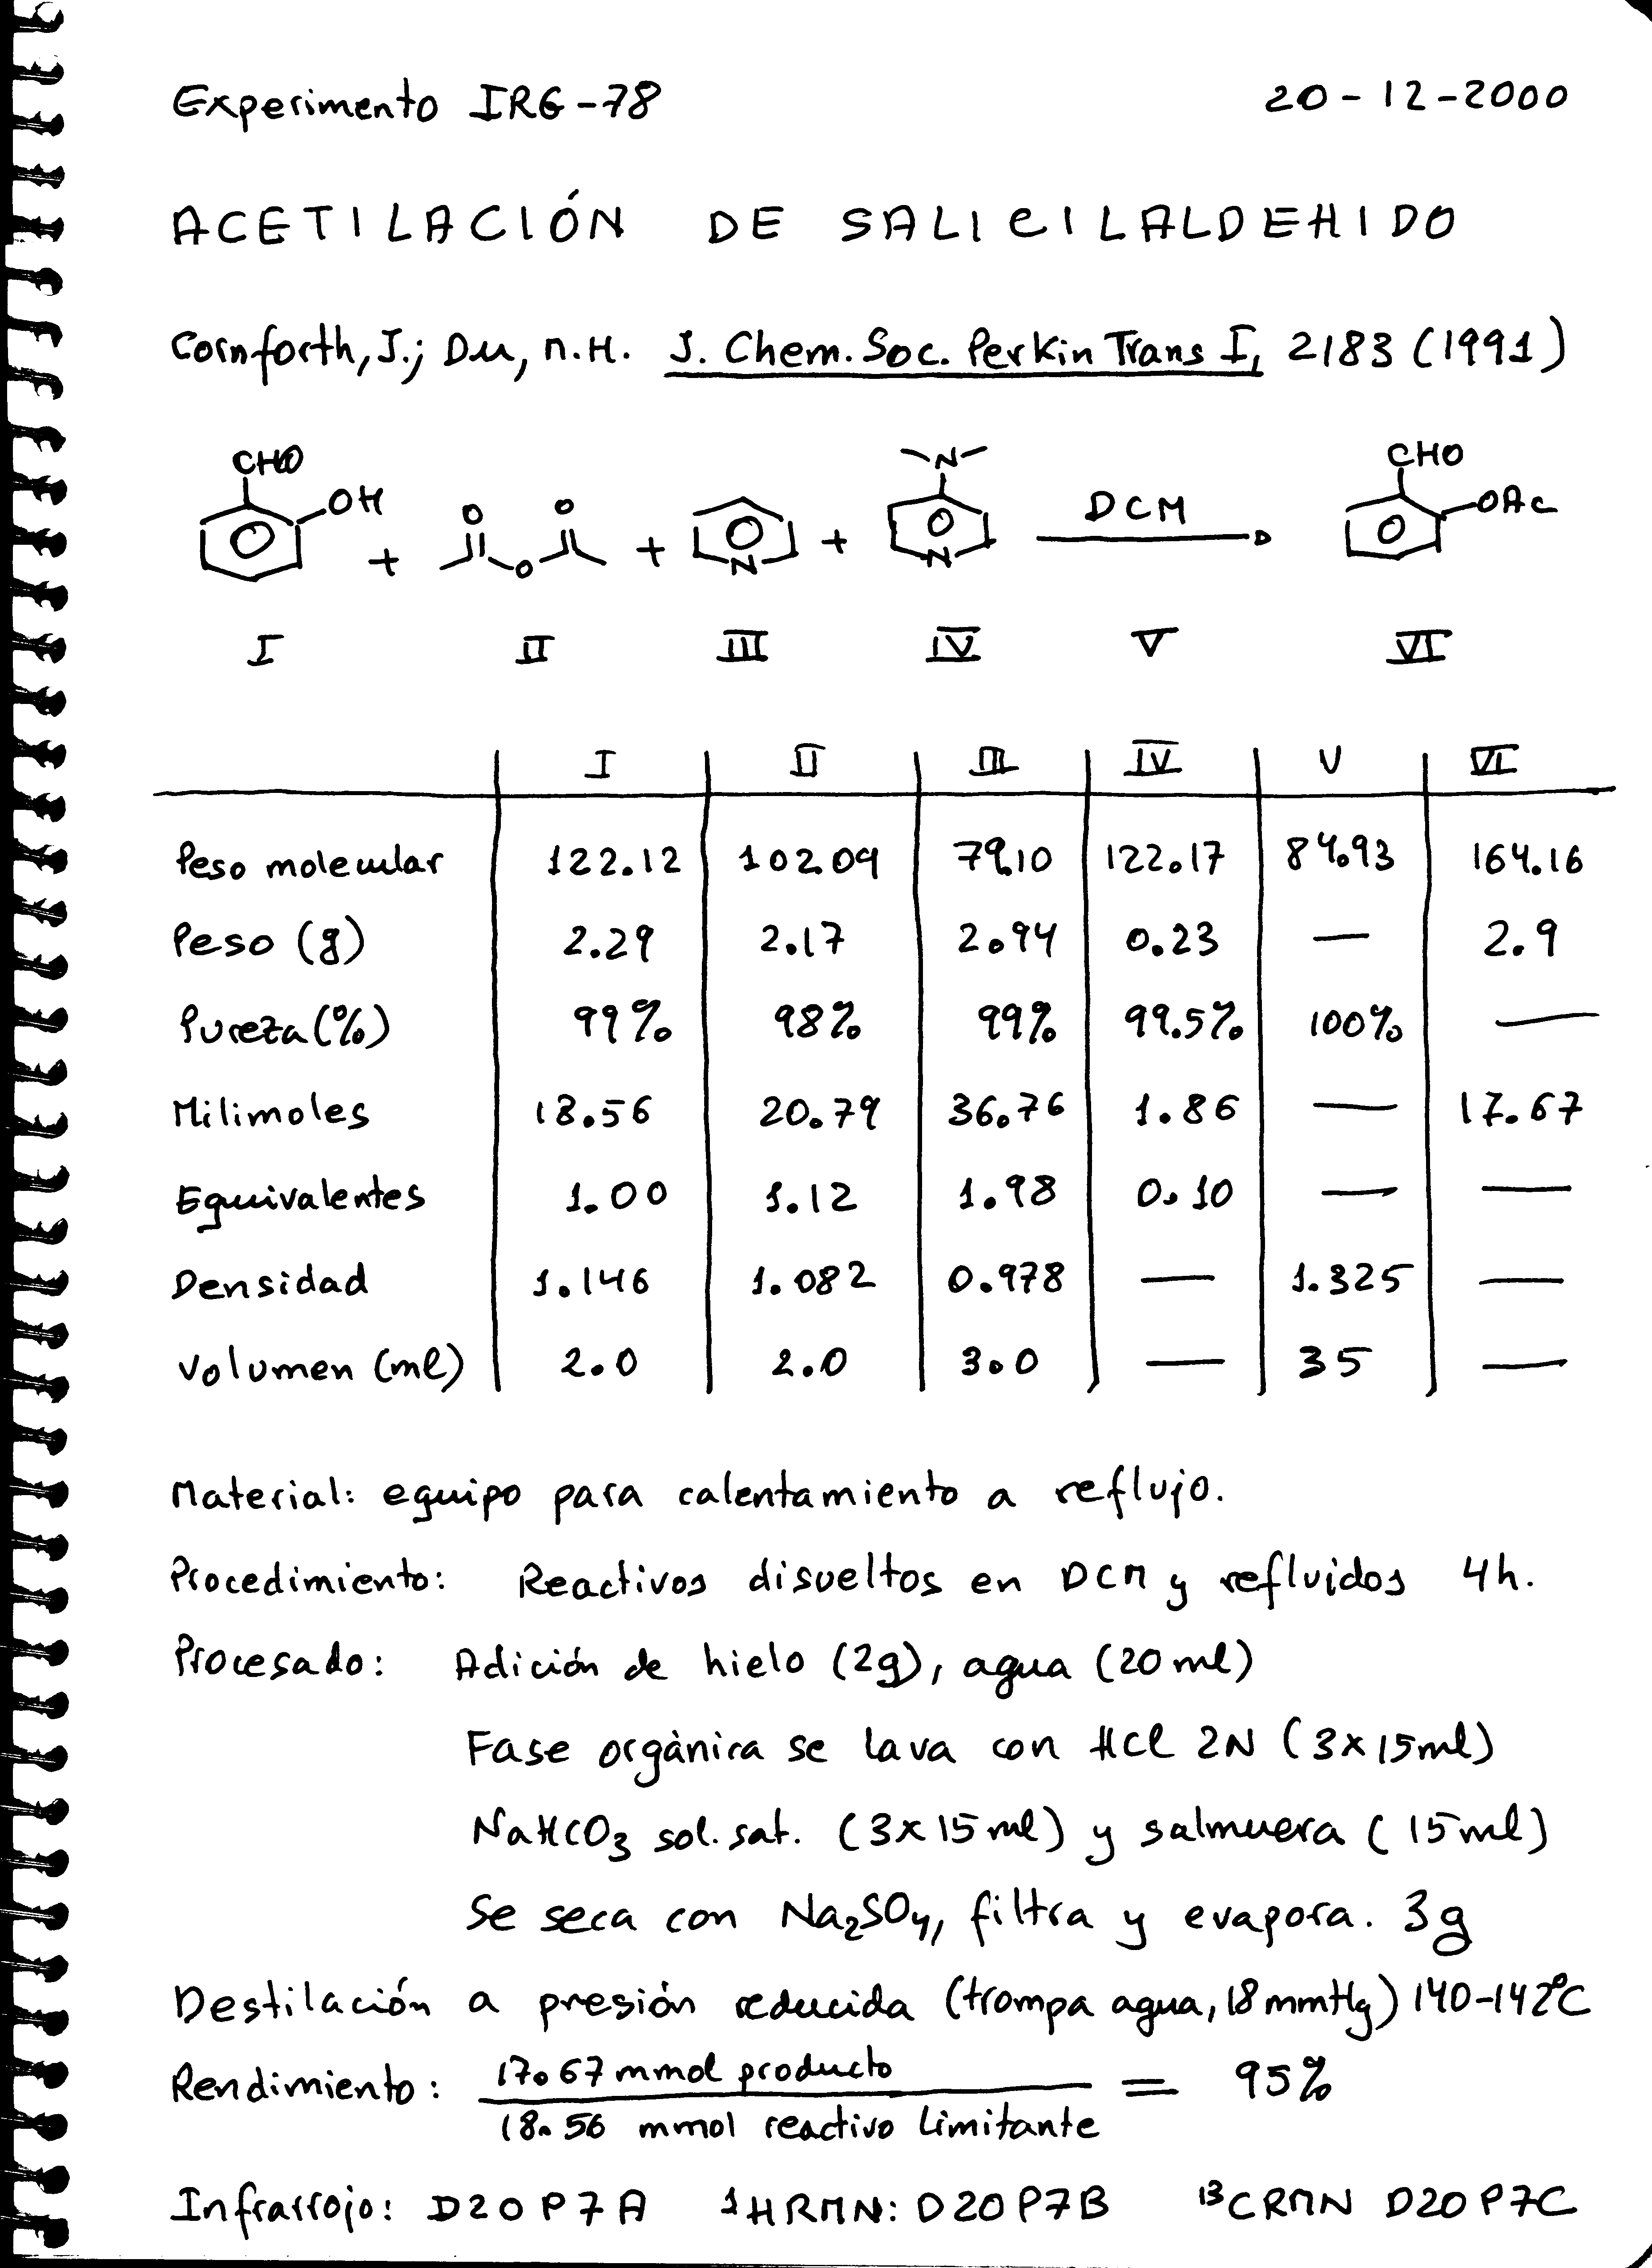 Experimento IRG-78 20-12-2000
ACETILACIÓN DE SALICILALDEHIDO
Cornforth, J.; Du, n.H. J. Chem. Soc. Perkin Trans I, 2183 (1991)
CHO OH + O O O + N + N N DCM CHO OAc
I II III IV V VI
I II III IV V VI
Peso molecular 122.12 102.09 79.10 122.17 84.93 164.16
Peso (g) 2.29 2.17 2.94 0.23 — 2.9
Pureza (%) 99% 98% 99% 99.5% 100% —
Milimoles 18.56 20.79 36.76 1.86 — 17.67
Equivalentes 1.00 1.12 1.98 0.10 — —
Densidad 1.146 1.082 0.978 — 1.325 —
Volumen (ml) 2.0 2.0 3.0 — 35 —
Material: equipo para calentamiento a reflujo.
Procedimiento: Reactivos disueltos en DCM y refluidos 4h.
Procesado: Adición de hielo (2g), agua (20 ml)
Fase orgànica se lava con HCl 2N (3x15ml)
NaHCO3 sol. sat. (3x15 ml) y salmuera (15ml)
Se seca con Na2SO4, filtra y evapora. 3g
Destilación a presión reducida (trompa agua, 18 mmHg) 140-142ºC
Rendimiento: 17.67 mmol producto = 95%
18.56 mmol reactivo limitante
Infrarrojo: D20P7A 1HRMN: D20P7B 13CRMN D20P7C